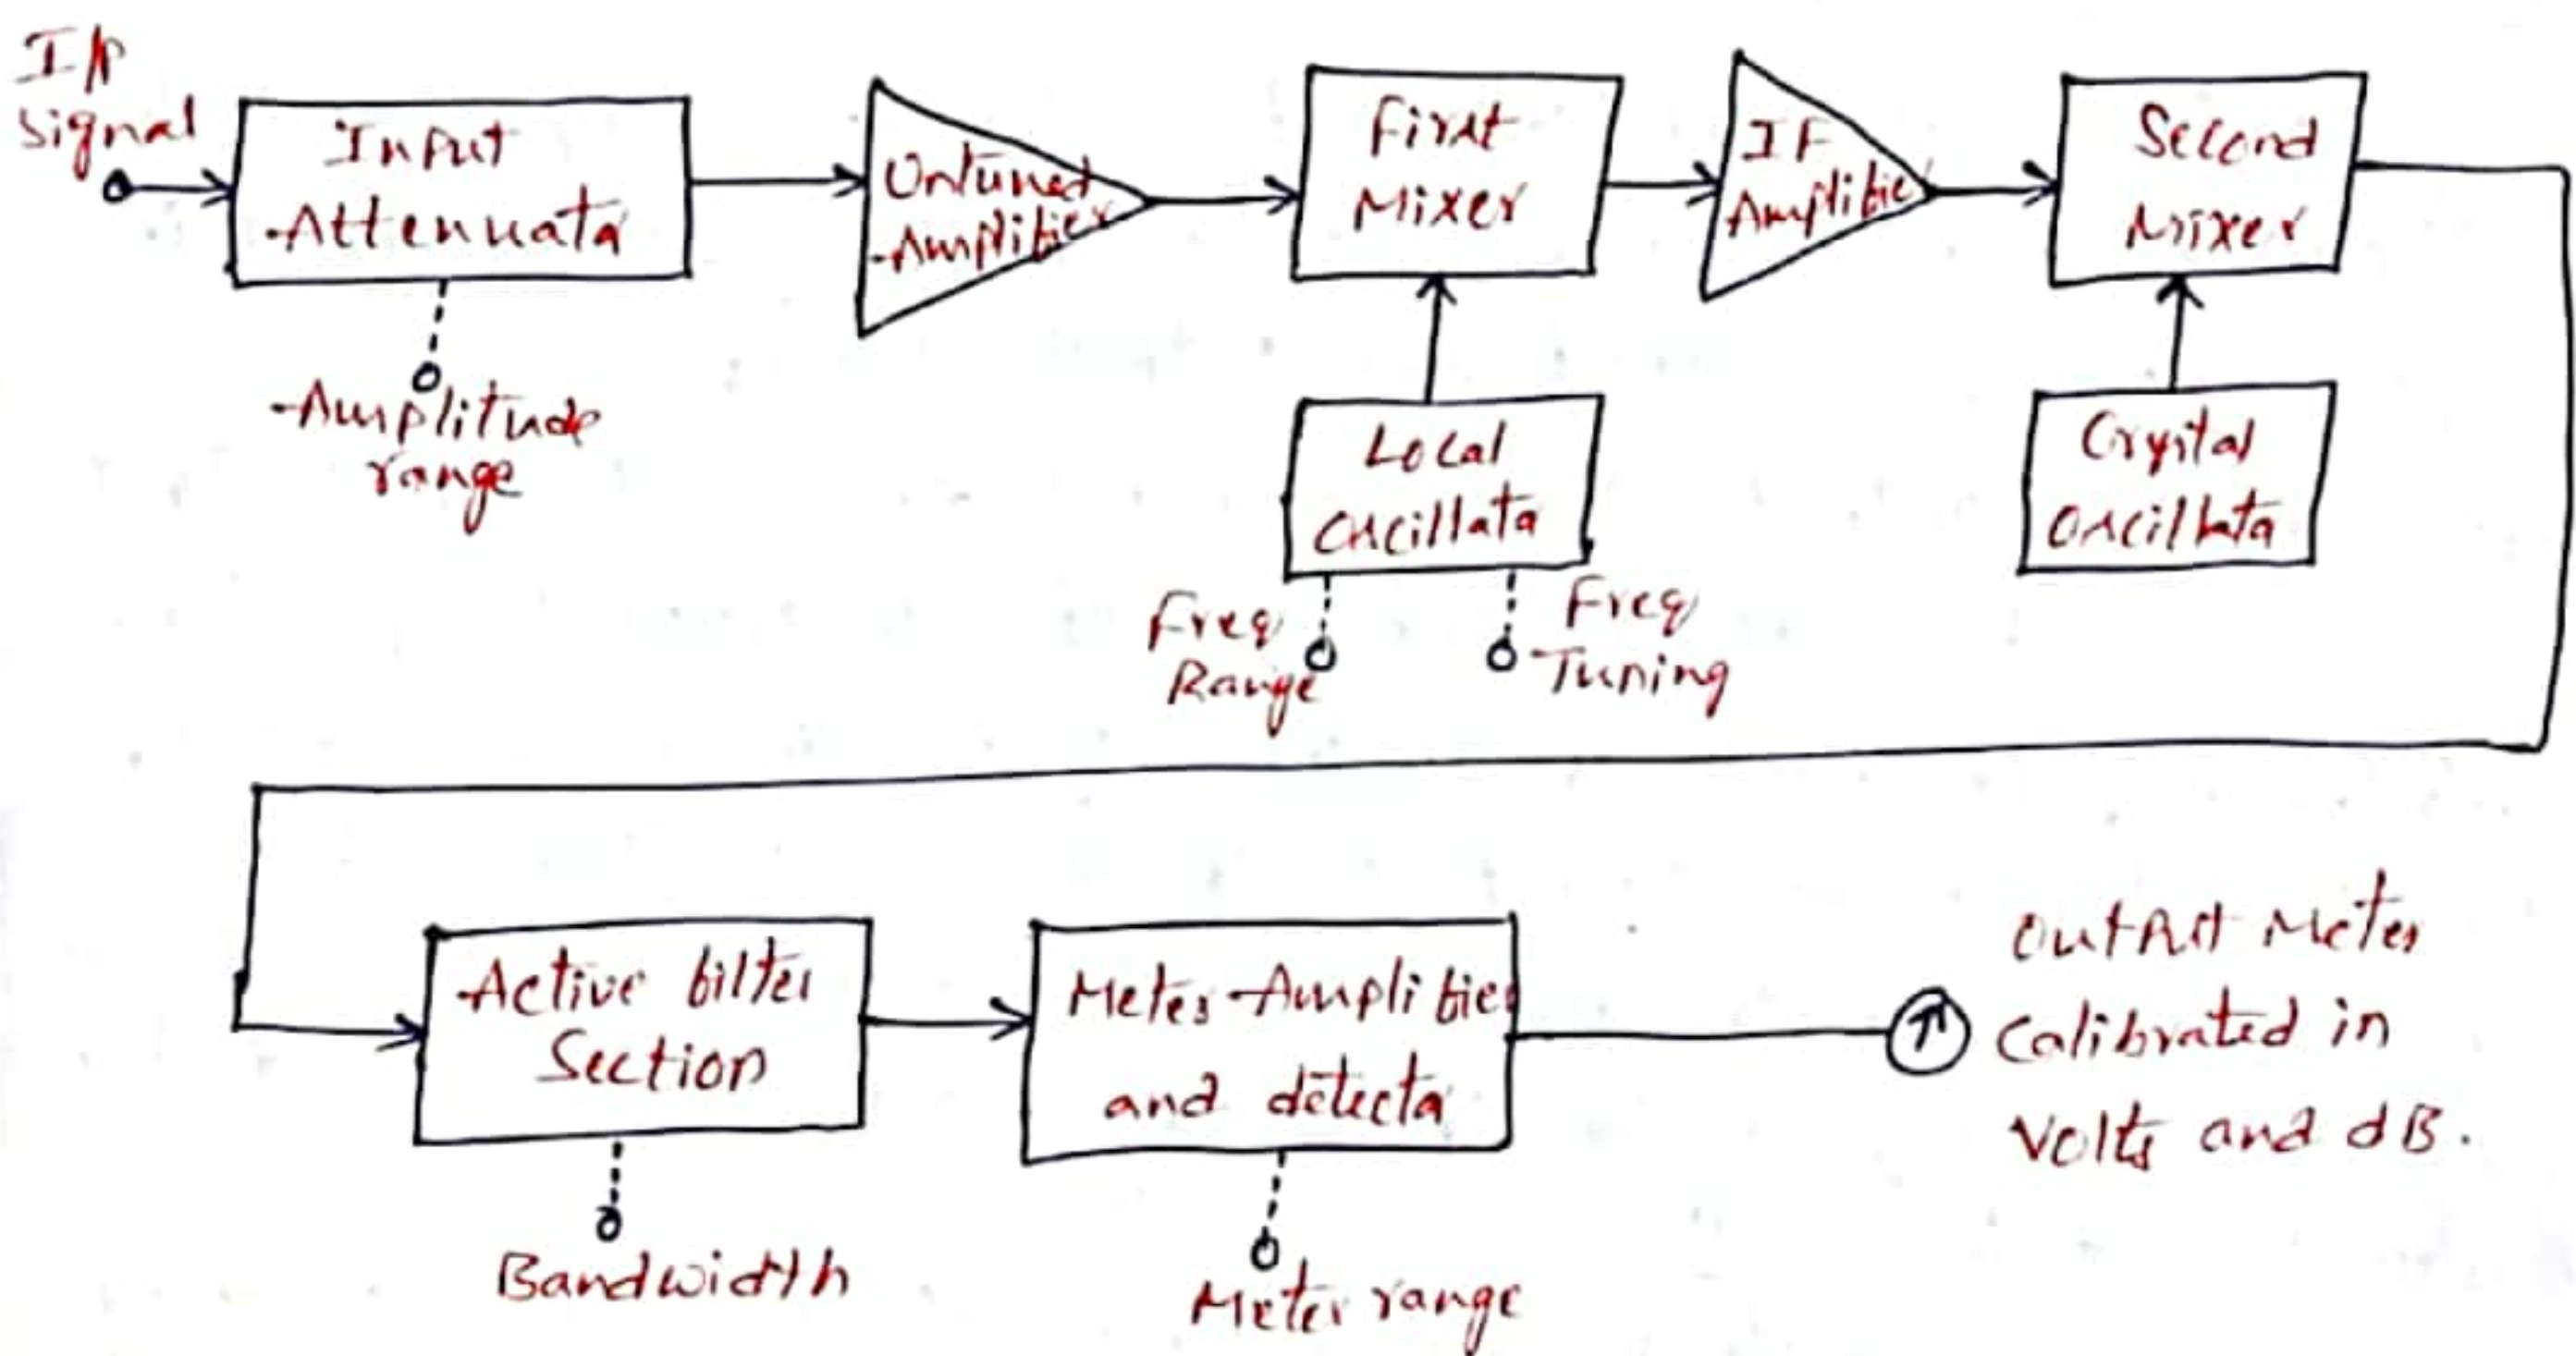 I/p
signal
Input
Attenuator
Amplitude
range
Untuned
Amplifier
First
Mixer
Local
Oscillator
Freq
Range
Freq
Tuning
IF
Amplifier
Second
Mixer
Crystal
Oscillator
Active filter
Section
Bandwidth
Meter Amplifier
and detector
Meter range
Output Meter
Calibrated in
Volts and dB.